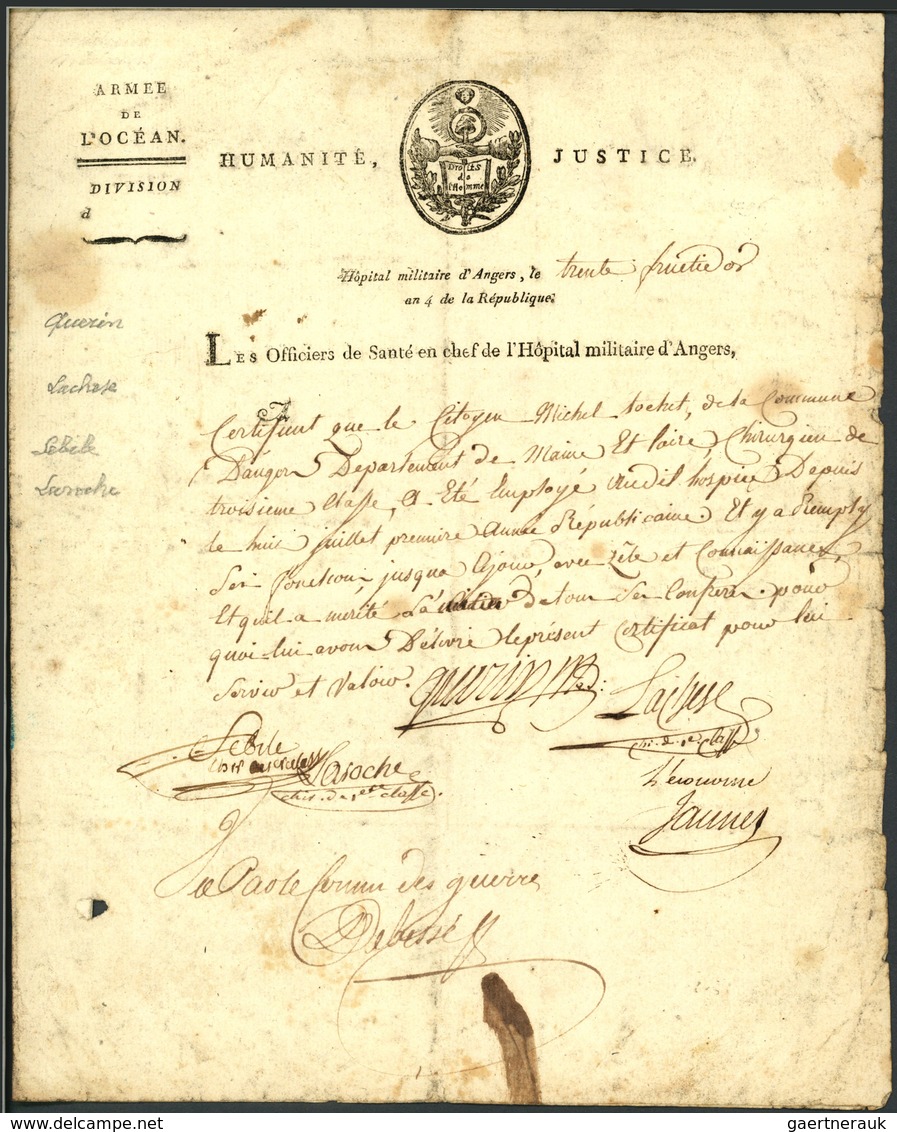 ARMÉE
DE
L'OCÉAN.
DIVISION
d
HUMANITÉ,
JUSTICE.
DROITS
de
l'Homme
Hôpital militaire d'Angers, le trente fructidor
an 4 de la République.
LES Officiers de Santé en chef de l'Hôpital militaire d'Angers,
Certifient que le Citoyen Michel tochet, de la Commune
D'angers Departement de Maine Et loire, Chirurgien de
troisieme Classe, A Eté Employé audit hospice Depuis
le huit juillet premiere Année Républicaine. Et y a Remply
Ses fonctions, jusqua Cejour, avec Zèle et Connaissance,
Et quil a merité de tous Ses Confreres. pour
quoi lui avons Délivré leprésent Certificat pour lui
Servir et Valoir.
Querin Med:
Lachese
chi. de 1e. Classe
Lebile
Laroche
chir. de 1ere classe.
L'econome
Jaunes
Comm des guerres
Querin
Lachese
Lebile
Laroche
gaertnerauk